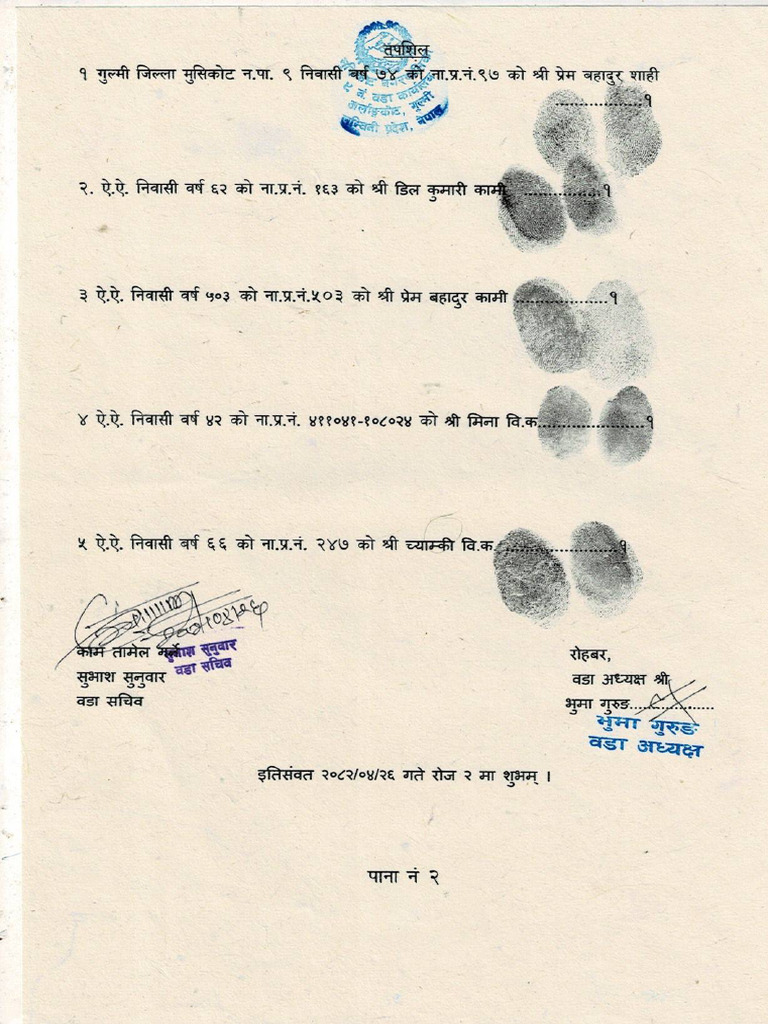 तपशिल
१ गुल्मी जिल्ला मुसिकोट न.पा. ९ निवासी बर्ष ७४ को ना.प्र.नं.९७ को श्री प्रेम बहादुर शाही
....................१
९ नं. वडा कार्यालय
गुल्मी
लुम्बिनी प्रदेश, नेपाल
२. ऐ.ऐ. निवासी वर्ष ६२ को ना.प्र.नं. १६३ को श्री डिल कुमारी कामी ................१
३ ऐ.ऐ. निवासी वर्ष ५०३ को ना.प्र.नं.५०३ को श्री प्रेम बहादुर कामी ....................१
४ ऐ.ऐ. निवासी वर्ष ४२ को ना.प्र.नं. ४११०४१-१०८०२४ को श्री मिना वि.क........................१
५ ऐ.ऐ. निवासी बर्ष ६६ को ना.प्र.नं. २४७ को श्री च्याम्की वि.क. .........................१
काम तामेल गर्ने
सुभाश सुनुवार
वडा सचिव
सुभाश सुनुवार
वडा सचिव
रोहबर,
वडा अध्यक्ष श्री
भुमा गुरुङ..................
भुमा गुरुङ
वडा अध्यक्ष
इतिसंवत २०८२/०४/२६ गते रोज २ मा शुभम् ।
पाना नं २